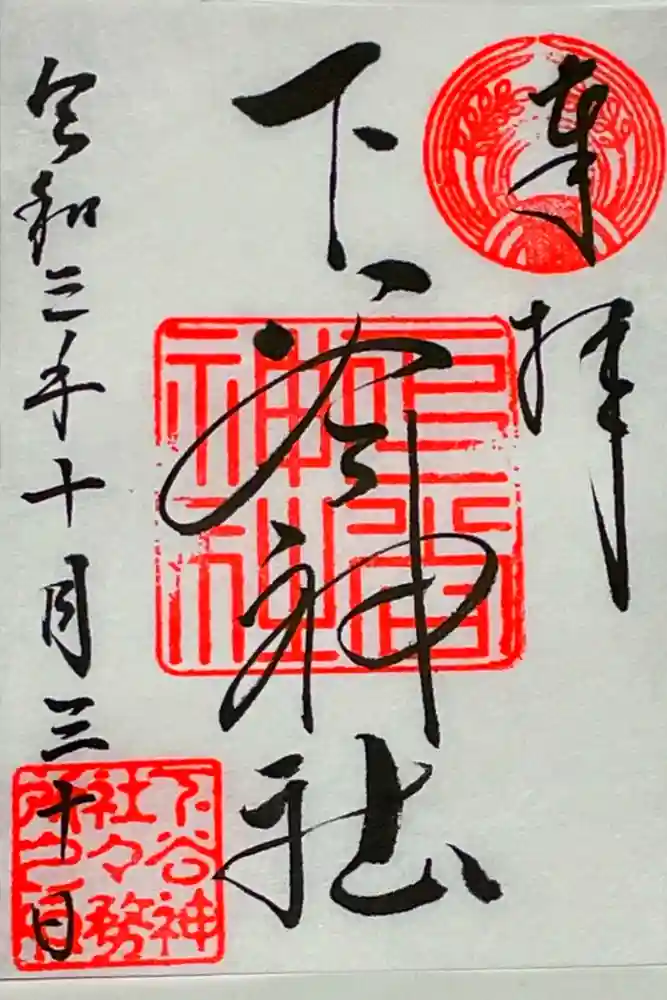 奉拝
下谷神社
下谷神社
令和三年十月三十日
下谷神
社々務
所之印